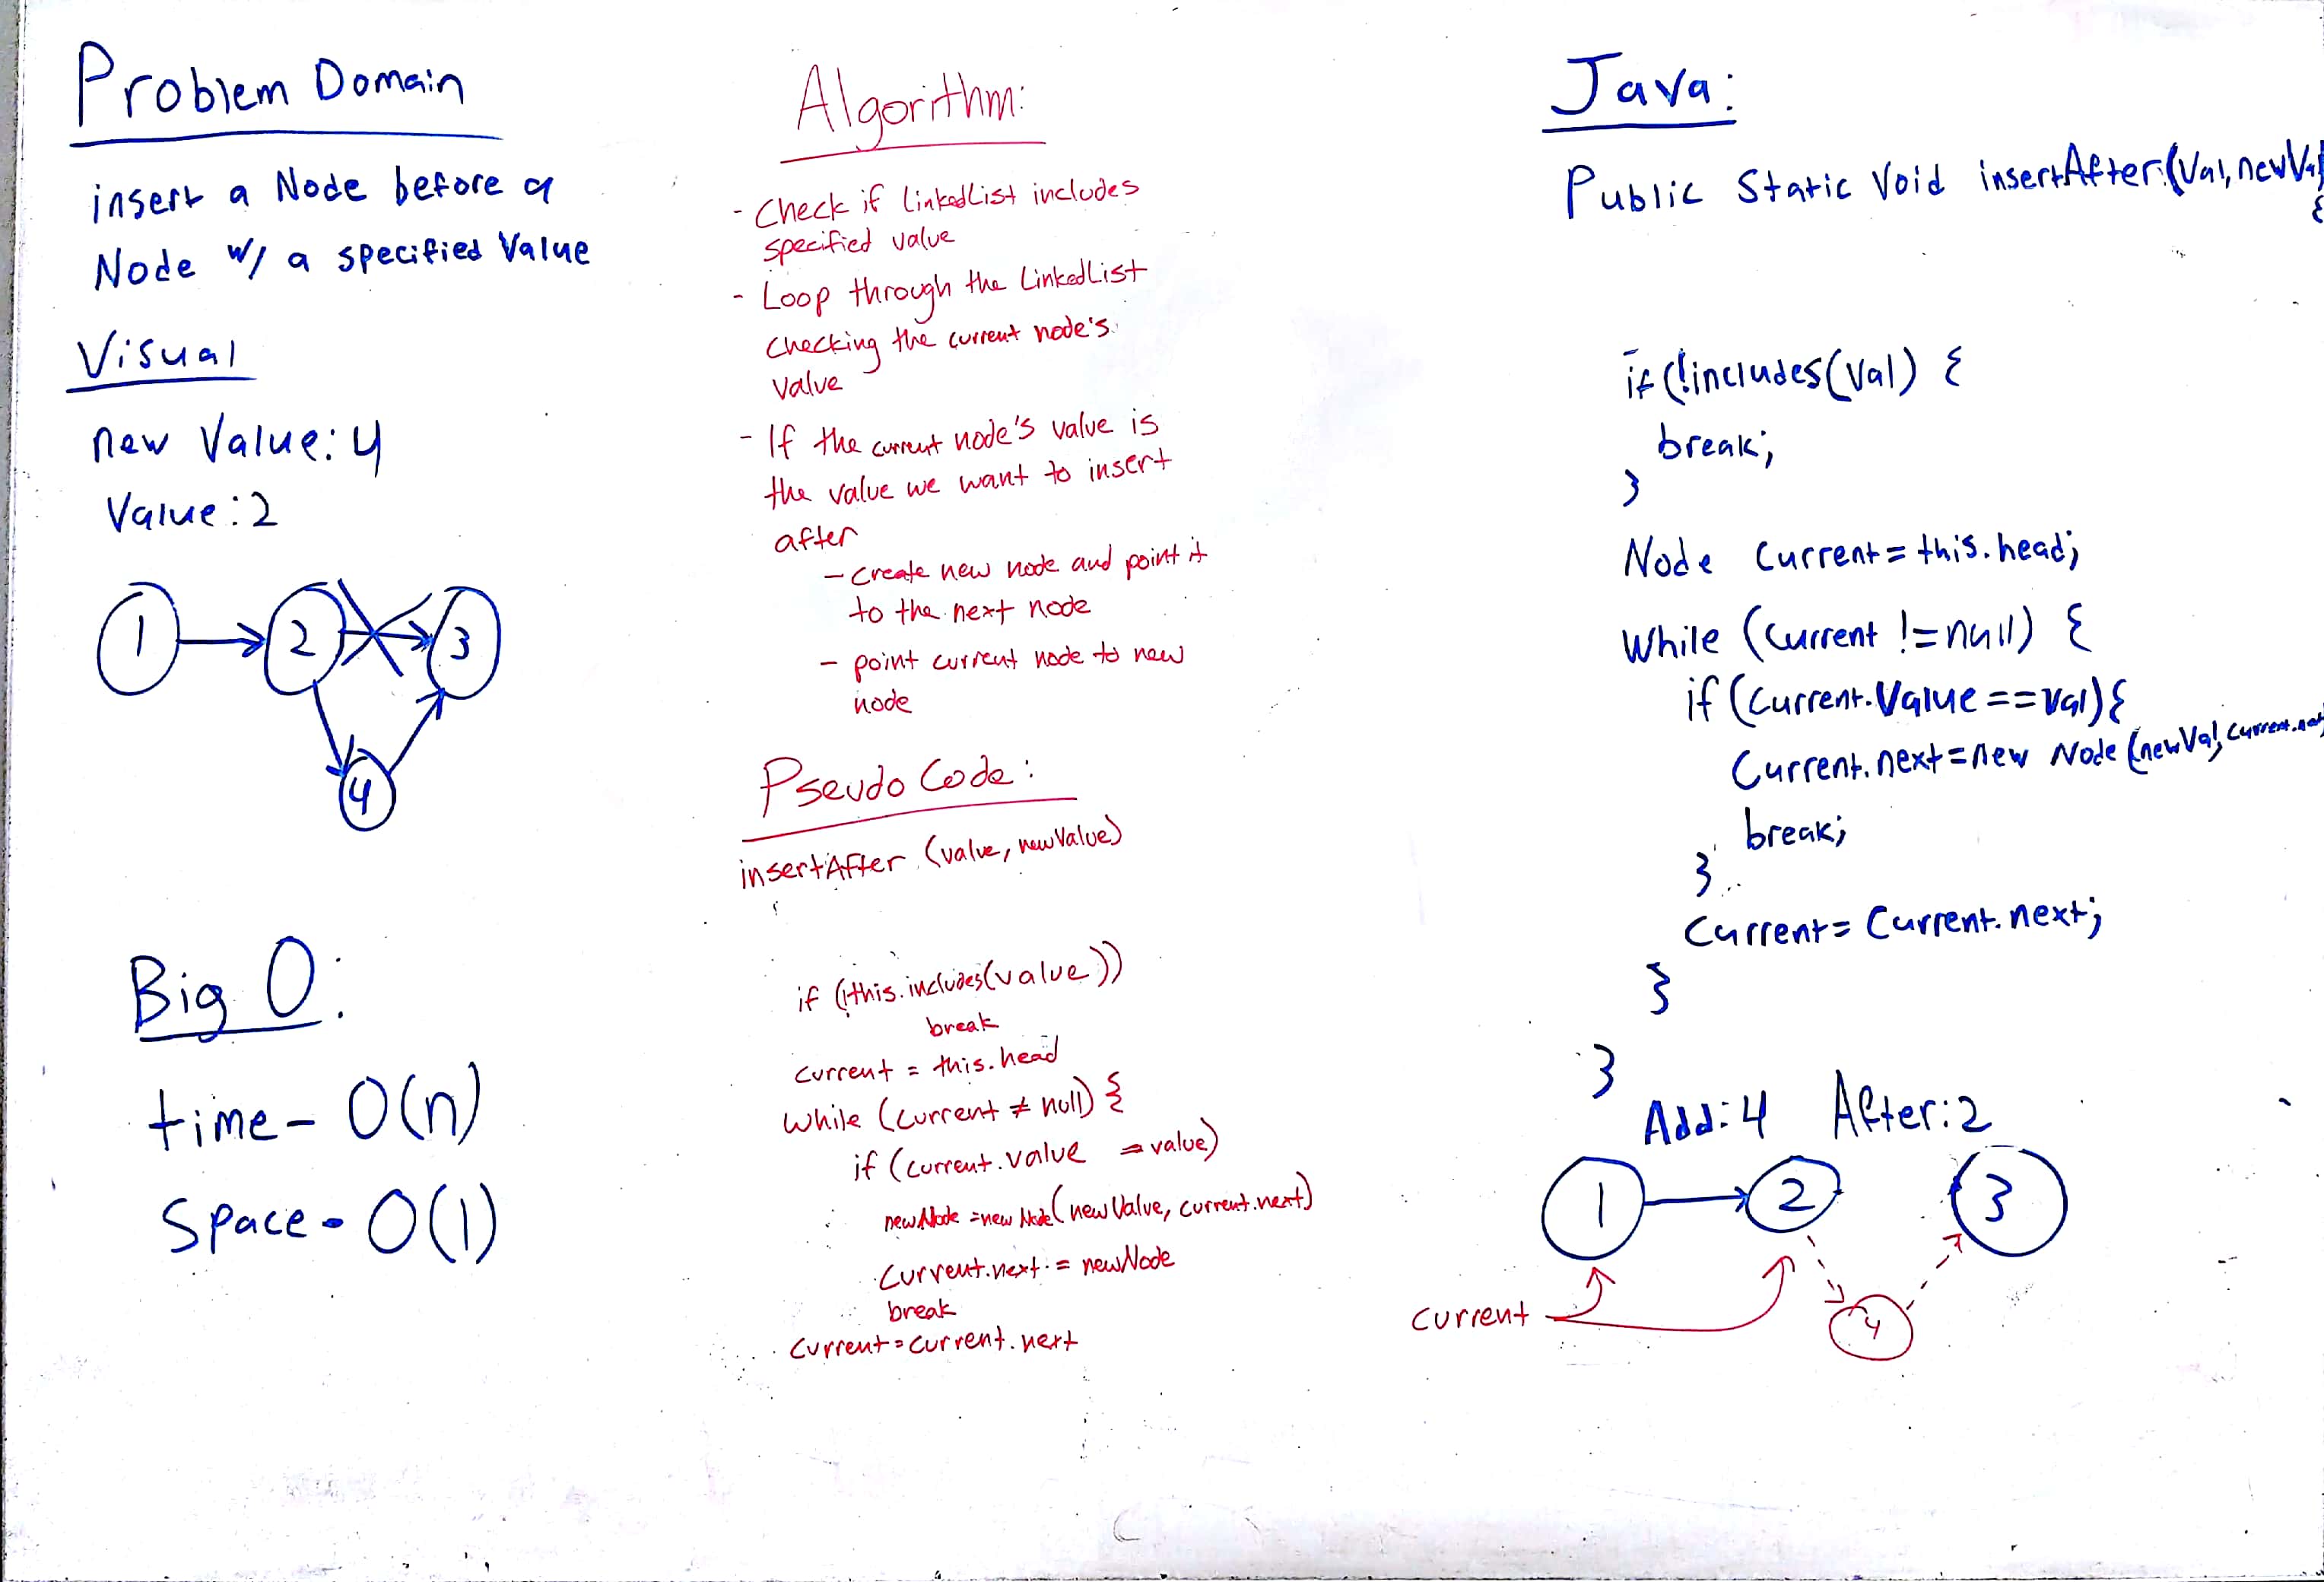 Problem Domain
insert a Node before a
Node w/ a specified Value
Visual
new Value: 4
Value: 2
1 2 3
4
Big O:
time - O(n)
Space - O(1)
Algorithm:
- Check if LinkedList includes
specified value
- Loop through the LinkedList
checking the current node's
value
- If the current node's value is
the value we want to insert
after
- create new node and point it
to the next node
- point current node to new
node
Pseudo Code:
insertAfter (value, newValue)
if (!this.includes(value))
break
current = this.head
while (current ≠ null) {
if (current.value = value)
newNode = new Node(newValue, current.next)
current.next = newNode
break
current = current.next
Java:
Public Static Void insertAfter(Val, newVal
{
if (!includes(Val) {
break;
}
Node Current = this.head;
While (Current != null) {
if (Current.Value == Val) {
Current.next = new Node (newVal, Current.next
break;
}
Current = Current.next;
}
}
Add: 4 After: 2
1 2 3
Current
4